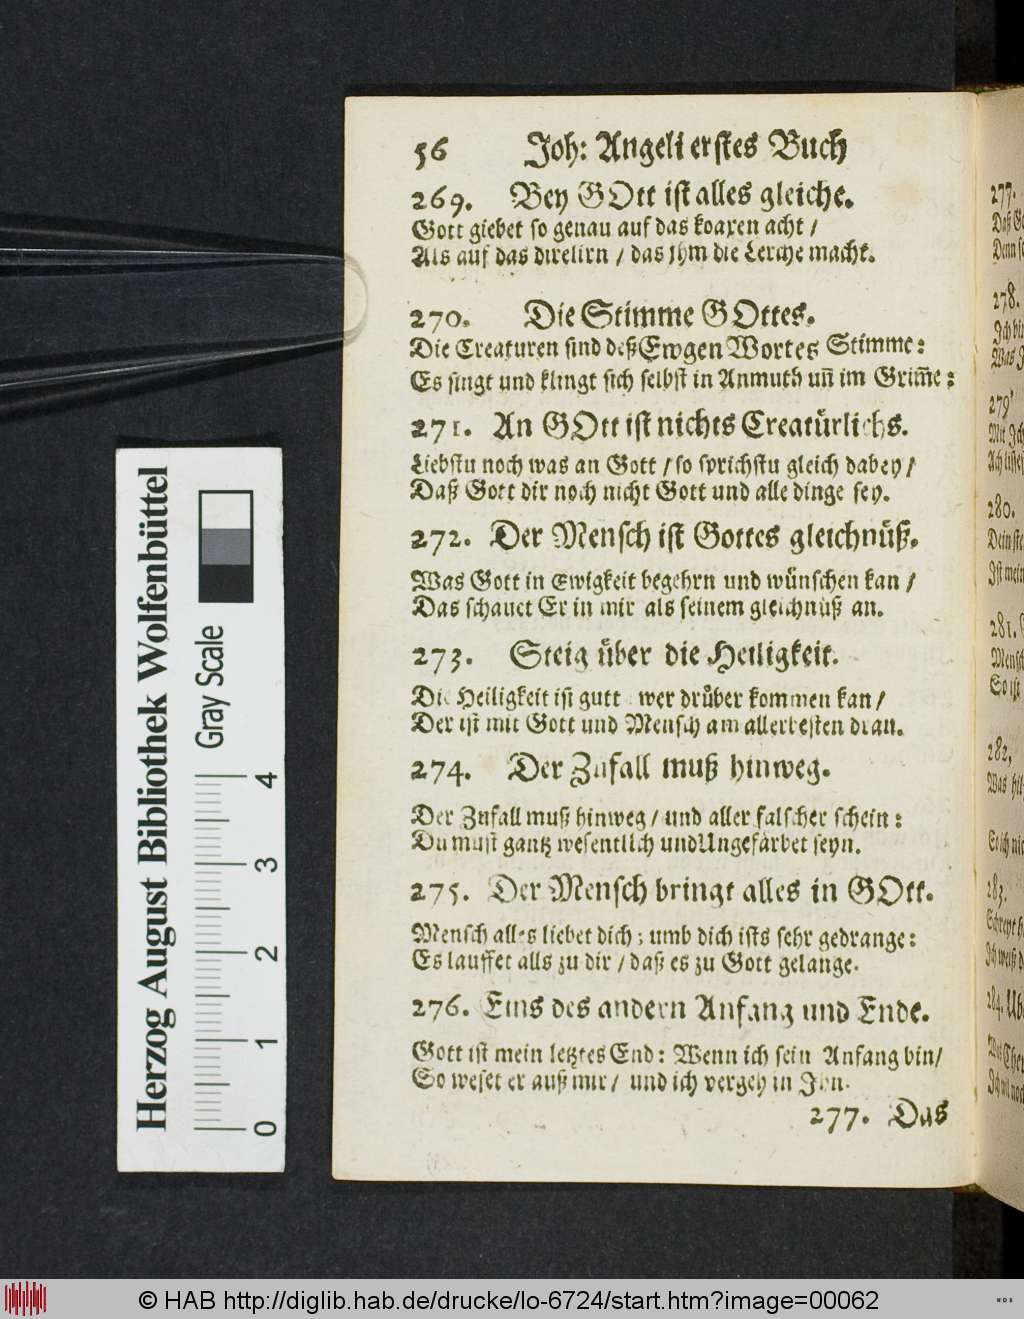 56 Joh: Angeli erstes Buch
269. Bey GOtt ist alles gleiche.
Gott giebet so genau auf das koaxen acht /
Als auf das direlirn / das jhm die Lerche macht.
270. Die Stimme GOttes.
Die Creaturen sind deß Ewgen Wortes Stimme:
Es singt und klingt sich selbst in Anmuth uñ im Grim̃e:
271. An GOtt ist nichts Creatürlichs.
Liebstu noch was an Gott / so sprichstu gleich dabey /
Daß Gott dir noch nicht Gott und alle dinge sey.
272. Der Mensch ist Gottes gleichnüß.
Was Gott in Ewigkeit begehrn und wünschen kan /
Das schauet Er in mir als seinem gleichnüß an.
273. Steig über die Heiligkeit.
Die Heiligkeit ist gutt wer drüber kommen kan /
Der ist mit Gott und Mensch am allerbesten dran.
274. Der Zufall muß hinweg.
Der Zufall muß hinweg / und aller falscher schein:
Du must gantz wesentlich und Ungefärbet seyn.
275. Der Mensch bringt alles in GOtt.
Mensch alles liebet dich; umb dich ists sehr gedrange:
Es lauffet alls zu dir / daß es zu Gott gelange.
276. Eins des andern Anfang und Ende.
Gott ist mein letztes End: Wenn ich sein Anfang bin /
So weset er auß mir / und ich vergeh in Jhn.
277. Das
277.
278.
279
280.
281.
282,
283.
284.
Herzog August Bibliothek Wolfenbüttel
Gray Scale
0 1 2 3 4
© HAB http://diglib.hab.de/drucke/lo-6724/start.htm?image=00062
WDB